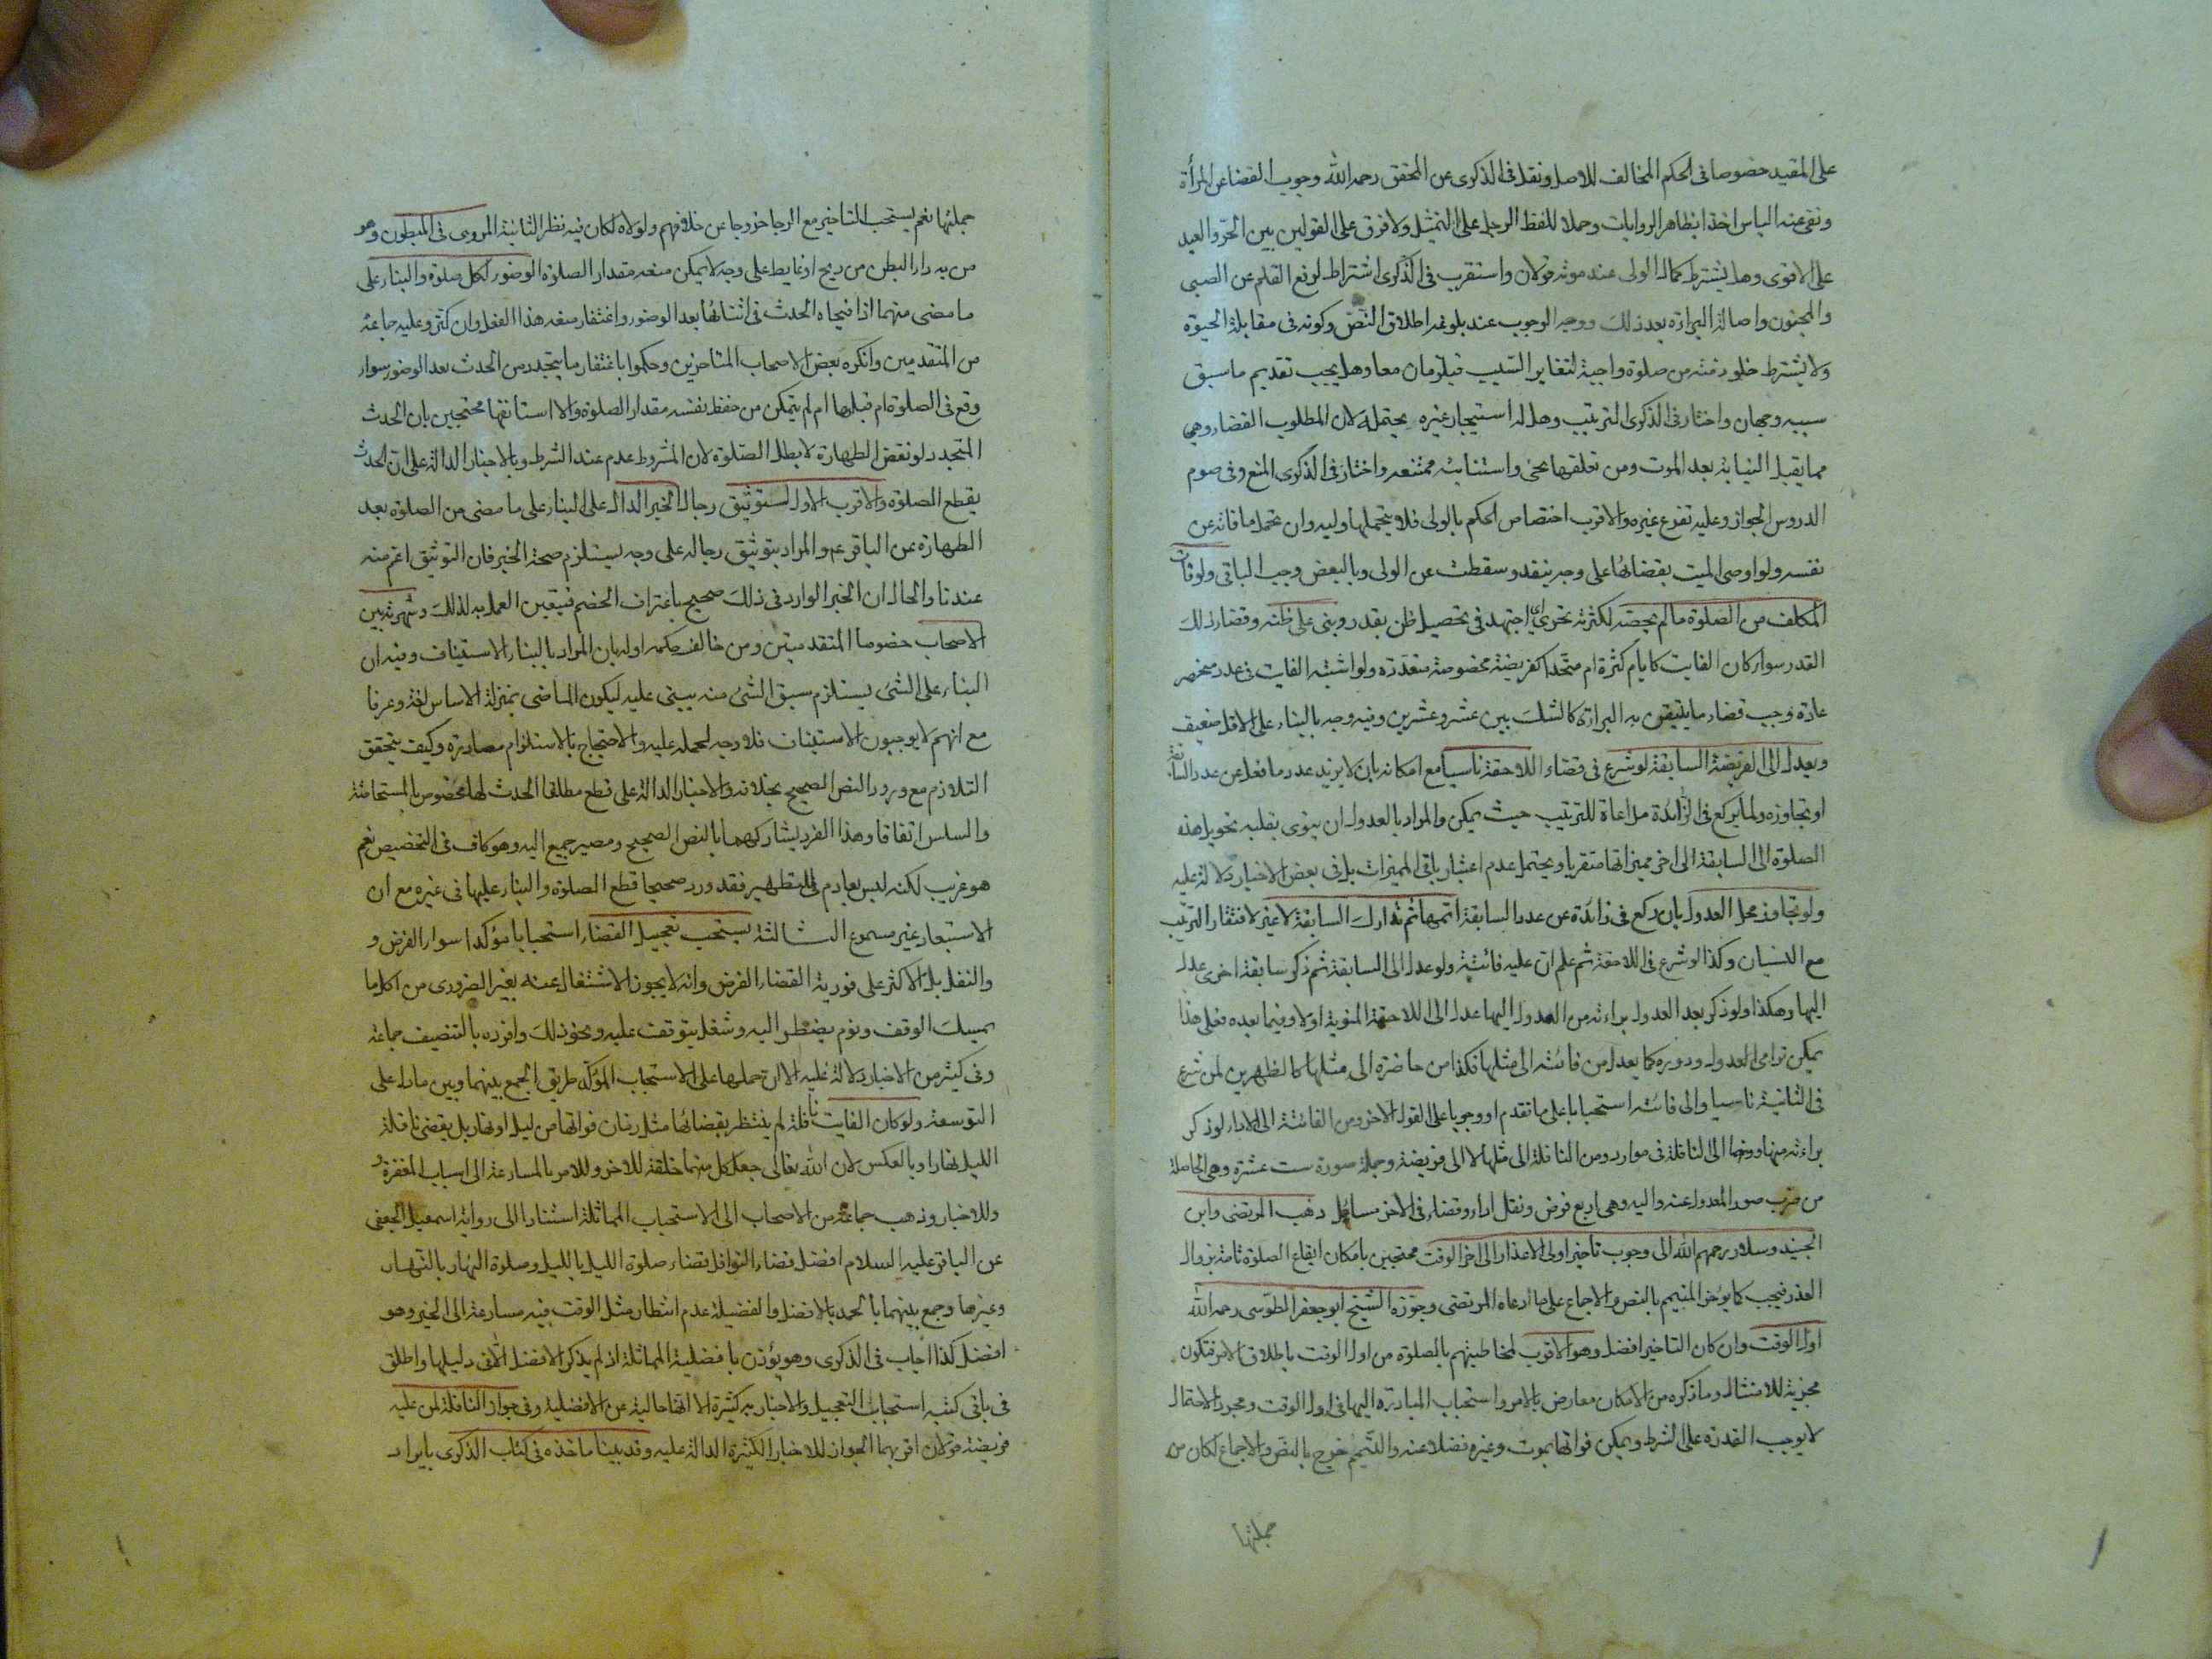 على المقيد خصوصا فى الحكم المخالف للاصل ونقل فى الذكرى عن المحقق رحمه الله وجوب القضا عن المرأة
ونفى عنه الباس اخذا بظاهر الروايات وحملا للفظ الرجل على التمثيل ولا فرق على القولين بين الحرّ والعبد
على الاقوى وهل يشترط كمال الولى عند موته قولان واستقرب فى الذكرى اشتراطه لرفع القلم عن الصبى
والمجنون واصالة البراءة بعد ذلك ووجه الوجوب عند بلوغه اطلاق النّصّ وكونه فى مقابلة الحبوة
ولا يشترط خلو ذمته من صلوة واجبة لتغاير السّبب فيلزمان معا وهل يجب تقديم ما سبق
سببه وجهان واختار فى الذكرى الترتيب وهل له استيجار غيره يحتمله لان المطلوب القضاء وهى
مما يقبل النيابة بعد الموت ومن تعلقها بحى واستنابته ممتنعه واختار فى الذكرى المنع وفى صوم
الدروس الجواز وعليه تفرع غيره والاقرب اختصاص الحكم بالولى فلا يتحملها وليه وان تحمل ما فاته عن
نفسه ولو اوصى الميت بقضائها على وجه ينفد وسقطت عن الولى وبالبعض وجب الباقى ولو فات
المكلف من الصلوة ما لم يحصه لكثرته تحرى اي اجتهد فى تحصيل ظن بقدر وبنى على ظنه وقضا ذلك
القدر سواء كان الفايت كايام كثرة ام متحدا كفريضة مخصوصة متعددة ولو اشتبه الفايت فى عدد منحصر
عادة وجب قضاء ما يتيقن به البراءة كالشك بين عشر وعشرين وفيه وجه بالبناء على الاقل ضعيف
ويعدل الى الفريضة السابقة لو شرع فى قضاء اللاحقة ناسيا مع امكانه بان لا يزيد عدد ما فعل عن عدد السابقة
او تجاوزه ولما يركع فى الزائدة مراعاة للترتيب حيث يمكن والمراد بالعدول ان ينوى بقلبه تحويل هذه
الصلوة الى السابقة الى اخر مميزاتها متقربا ويحتمل عدم اعتبار باقى المميزات بل فى بعض الاخبار دلالة عليه
ولو تجاوز محل العدول بان ركع فى زائدة عن عدد السابقة اتمها ثم تدارك السابقة لا غير لاغتفار الترتيب
مع النسيان وكذا لو شرع فى اللاحقة ثم علم ان عليه فائتة ولو عدل الى السابقة ثم ذكر سابقة اخرى عدل
اليها وهكذا ولو ذكر بعد العدول براءته من المعدول اليها عدل الى اللاحقة المنوية اولا وفيما بعده فعلى هذا
يمكن ترامى العدول ودوره كما يعدل من فائته الى مثلها فكذا من حاضرة الى مثلها كالظهرين لمن شرع
فى الثانية ناسيا والى فائته استحبابا على ما تقدم او وجوبا على القول الاخر ومن الفائتة الى الاداء لو ذكر
براءته منها ومنهما الى النافلة فى موارد ومن النافلة الى مثلها لا الى فريضة وجملة صوره ست عشرة وهى الحاصلة
من ضرب صور المعدول عنه واليه وهى اربع فرض ونفل اداء وقضاء فى الاخر مسائل ذهب المرتضى وابن
الجنيد وسلار رحمهم الله الى وجوب تأخير اولى الاعذار الى اخر الوقت محتجين بامكان ايقاع الصلوة تامة بزوال
العذر فيجب كما يؤخر المتيمم بالنص والاجماع على ما ادعاه المرتضى وجوّزه الشيخ ابو جعفر الطوسى رحمه الله
اول الوقت وان كان التاخير افضل وهو الاقرب لمخاطبتهم بالصلوة من اول الوقت باطلاق الامر فتكون
مجزية للامتثال وما ذكروه من الامكان معارض بالامر واستحباب المبادرة اليها فى اول الوقت ومجرد الاحتمال
لا يوجب القدرة على الشرط ويمكن فواتها بموت وغيره فضلا عنه والتيمم خرج بالنص والاجماع لكان من
جملتها
جملتها نعم يستحب التاخير مع الرجا خروجا عن خلافهم ولولاه لكان فيه نظر الثانية المروى فى المبطون وهو
من به داء البطن من ريح او غايط على وجه لا يمكن منعه مقدار الصلوة الوضوء لكل صلوة والبناء على
ما مضى منها اذا فجاه الحدث فى اثنائها بعد الوضوء واغتفار منعه هذا الفعل وان كثر وعليه جماعة
من المتقدمين وانكره بعض الاصحاب المتاخرين وحكموا باغتفار ما يتجدد من الحدث بعد الوضوء سواء
وقع فى الصلوة ام قبلها ام لم يتمكن من حفظ نفسه مقدار الصلوة والا استانفها محتجين بان الحدث
المتجدد لو نقض الطهارة لابطل الصّلوة لان المشروط عدم عند الشرط وبالاخبار الدالة على ان الحدث
يقطع الصلوة والاقرب الاول لتوثيق رجال الخبر الدال على البناء على ما مضى من الصلوة بعد
الطهارة عن الباقر ع والمراد بتوثيق رجاله على وجه يستلزم صحة الخبر فان التوثيق اعم منه
عندنا والحال ان الخبر الوارد فى ذلك صحيح باعتراف الخصم فيتعين العمل به لذلك وشهرته بين
الاصحاب خصوصا المتقدمين ومن خالف حكمه اوله بان المراد بالبناء الاستيناف وفيه ان
البناء على الشىء يستلزم سبق الشىء منه يبنى عليه ليكون الماضى بمنزلة الاساس لغة وعرفا
مع انهم لا يوجبون الاستيناف فلا وجه لحمله عليه والاحتجاج بالاستلزام مصادرة وكيف يتحقق
التلازم مع ورود النص الصحيح بخلافه والاخبار الدالة على قطع مطلقا الحدث لها مخصوص بالمستحاضة
والسلس اتفاقا وهذا الفرد يشاركهما بالنص الصحيح ومصير جميع اليه وهو كاف فى التخصيص نعم
هو غريب لكنه ليس بعادم للنظير فقد ورد صحيحا قطع الصلوة والبناء عليها فى غيره مع ان
الاستبعاد غير مسموع الثالثة يستحب تعجيل القضاء استحبابا مؤكدا سواء الفرض و
والنفل بل الاكثر على فورية القضاء الفرض وانه لا يجوز الاشتغال عنه بغير الضرورى من اكل ما
يمسك الوقف ونوم يضطر اليه وشغل يتوقف عليه ونحو ذلك وافرده بالتصنيف جماعة
وفى كثير من الاخبار دلالة عليه الا ان حملها على الاستحباب المؤكد طريق الجمع بينهما وبين ما دل على
التوسعة ولو كان الفايت نافلة لم ينتظر بقضائها مثل زمان فواتها من ليل او نهار بل يقضى نافلة
الليل نهارا وبالعكس لان الله تعالى جعل كل منهما خلفة للاخر وللامر بالمسارعة الى اسباب المغفرة و
وللاخبار وذهب جماعة من الاصحاب الى الاستحباب المماثلة استنادا الى رواية اسمعيل الجعفى
عن الباقر عليه السلام افضل قضاء النوافل قضاء صلوة الليل بالليل وصلوة النهار بالنّهار
وغيرها وجمع بينهما بالحمل بالافضل والفضيلة عدم انتظار مثل الوقت فيه مسارعة الى الخير وهو
افضل كذا اجاب فى الذكرى وهو يؤذن بافضلية المماثلة اذ لم يذكر الافضل الّا فى دليلها واطلق
فى باقى كتبه استحباب التعجيل والاخبار به كثيرة الا انها خالية عن الافضلية وفى جواز النافلة لمن عليه
فريضة قولان اقربهما الجواز للاخبار الكثيرة الدالة عليه وقد بينا ماخذه فى كتاب الذكرى بايراد